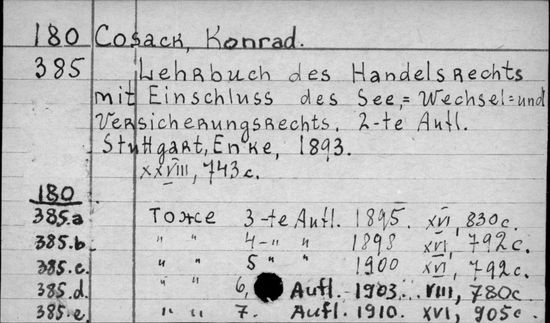 180 Cosack, Konrad.
385 Lehrbuch des Handelsrechts
mit Einschluss des See,= Wechsel=und
Versicherungsrechts. 2-te Aufl.
Stuttgart, Enke, 1893.
XXVIII, 743 с.
180
385.a Тоже 3-te Aufl. 1895. XVI, 830 с.
385.b. " " 4-" " 1898 XVI, 792 с.
385.c. " " 5 " " 1900 XVI, 792 с.
385.d. " " 6, Aufl. 1903... VIII, 780 с
385.e. " " 7. Aufl. 1910. XVI, 905 с.